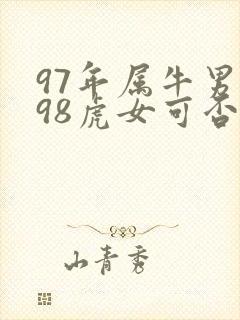 97年属牛男
98虎女可否
山青秀